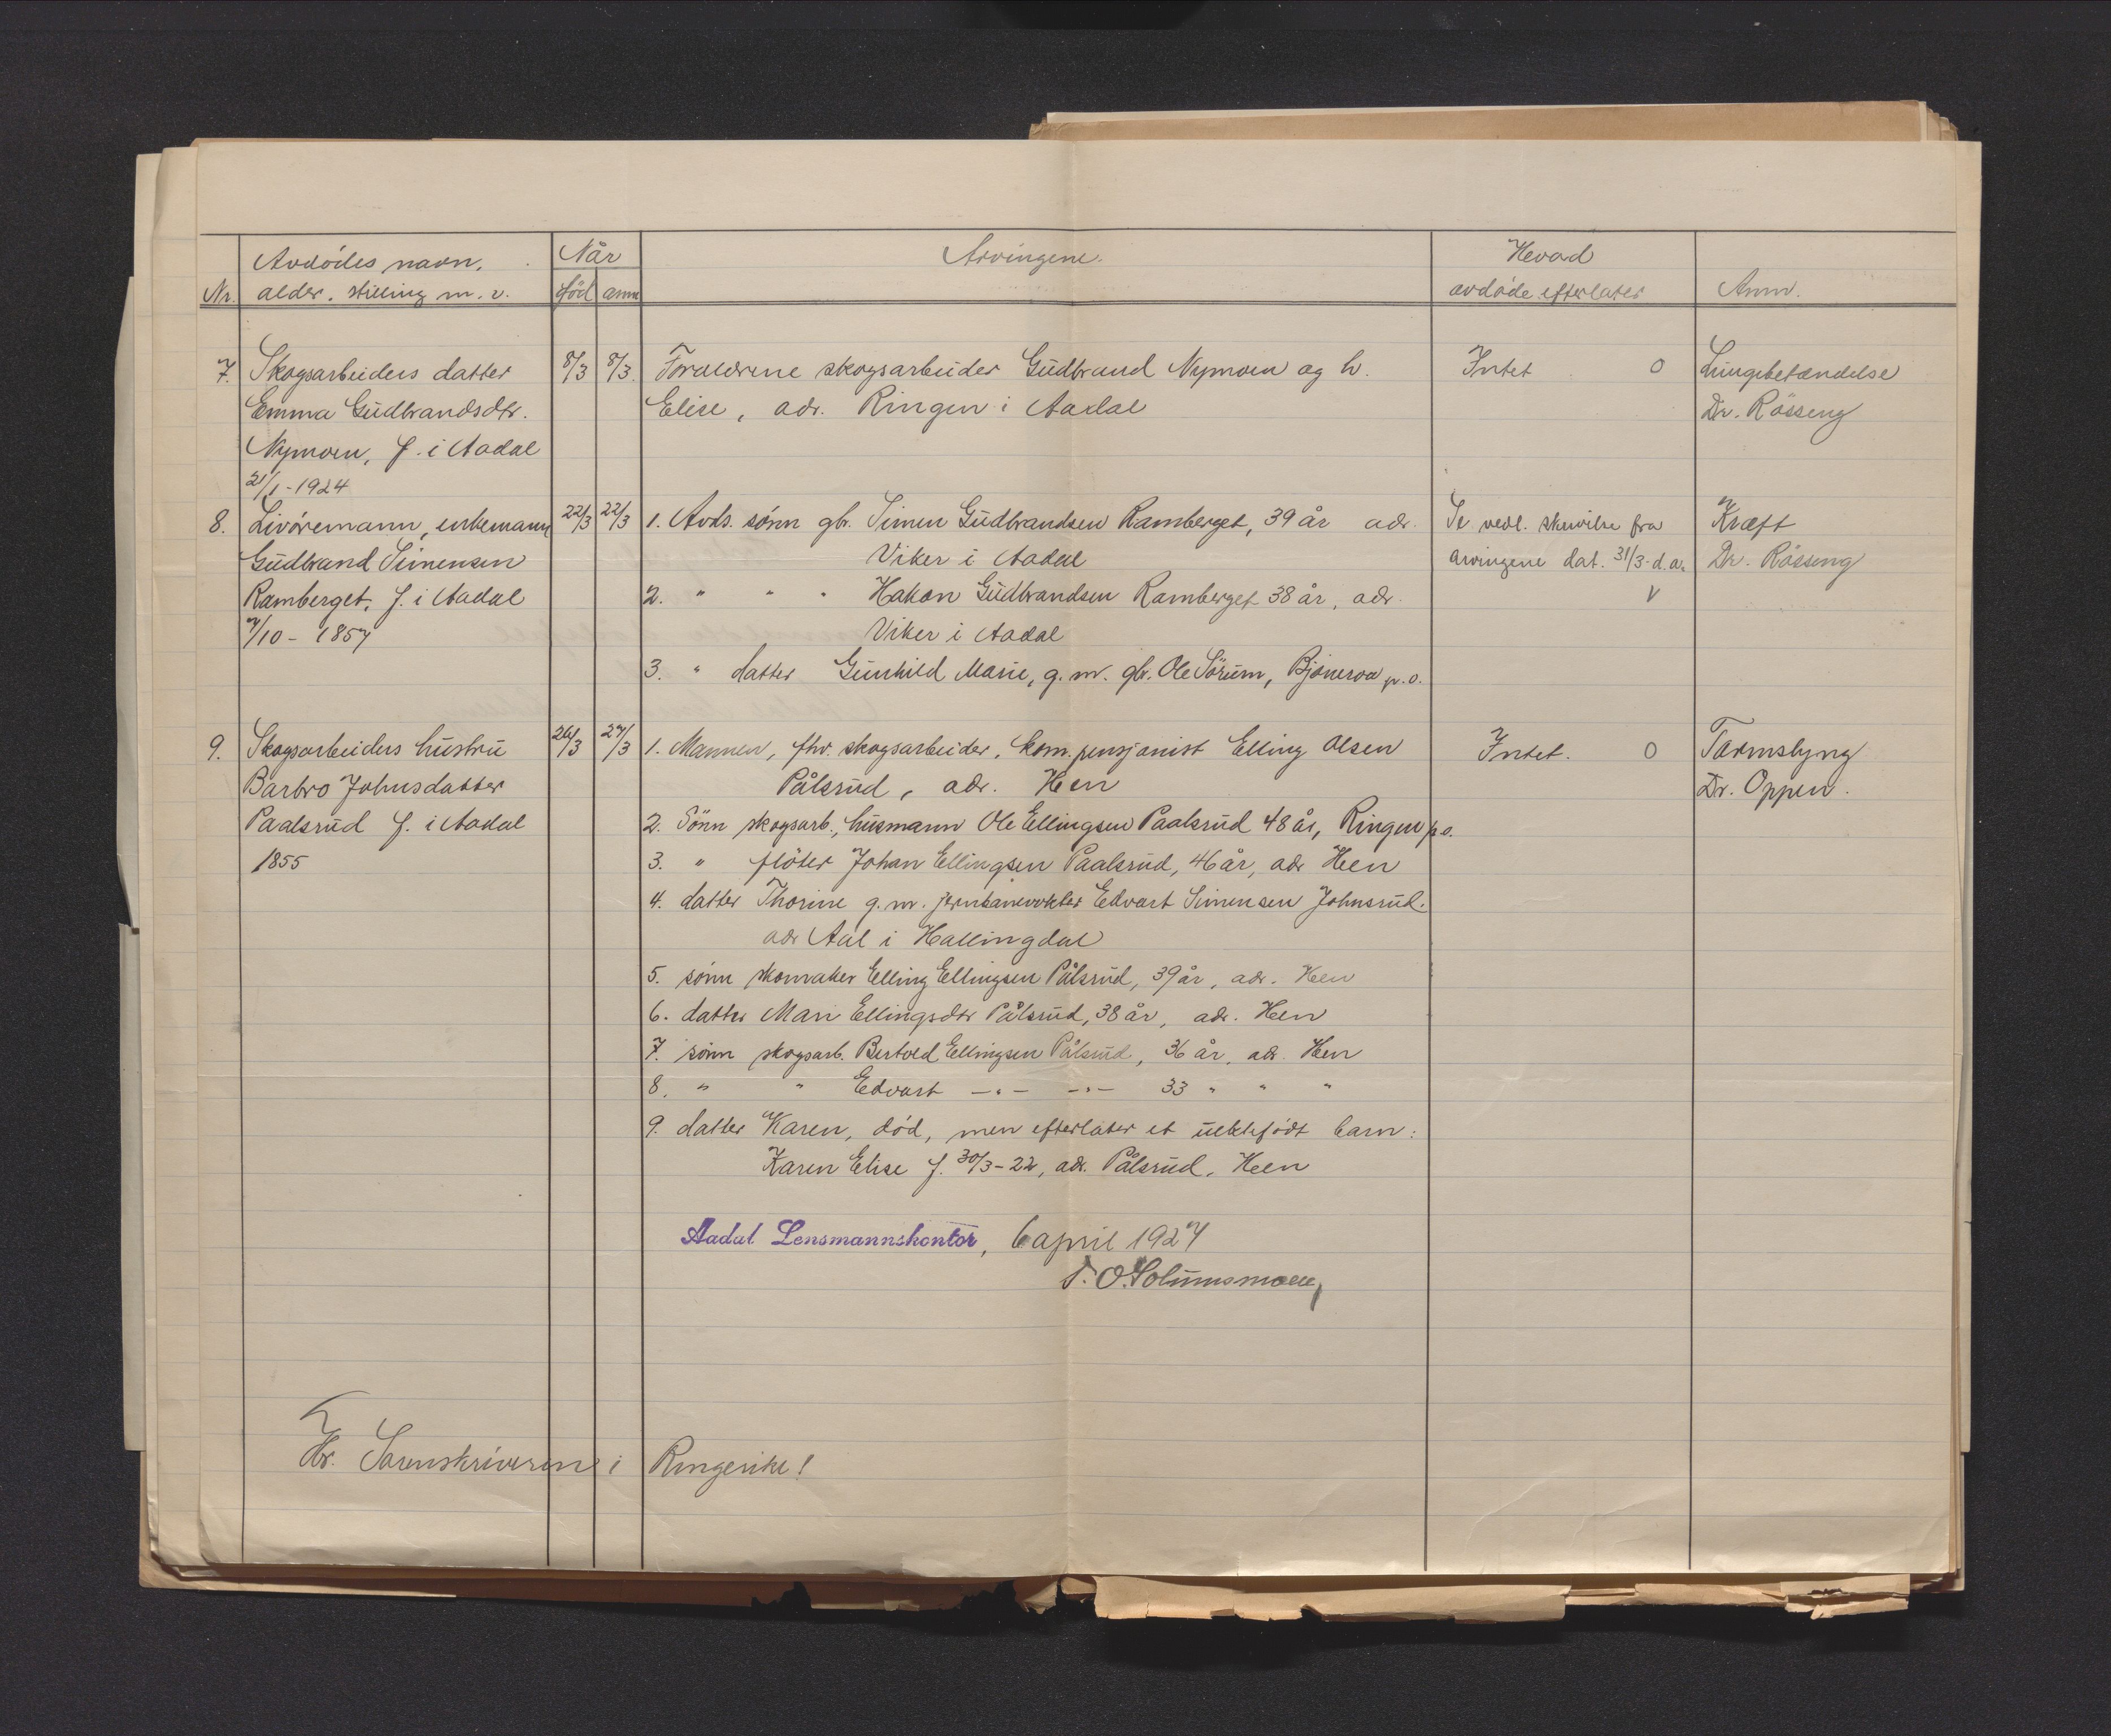 Avdødes navn, Når Arvingene. Hevad
Nr. alder, stilling m. v. död anm avdøde efterlater Anm.
7. Skogsarbeiders datter 8/3 8/3. Foreldrene skogsarbeider Gudbrand Nymoen og h. Intet 0 Lungebetændelse
Emma Gudbrandsdtr. Elise, adr. Ringen i Aadal Dr. Rösseng
Nymoen, f. i Aadal
21/1-1924
8. Livöremann, enkemann 22/3 22/3 1. Avds. sönn gbr. Simen Gudbrandsen Ramberget, 39 år adr. Se vedl. skrivelse fra Kræft
Gudbrand Simensen Viker i Aadal arvingene dat. 31/3- d.a. Dr. Rösseng
Ramberget, f. i Aadal 2. " " " Hakon Gudbrandsen Ramberget 38 år, adr. V
7/10 - 1857 Viker i Aadal
3. " datter Gunhild Marie, g. m. gbr. Ole Sörum, Bjoneroa p.o.
9. Skogsarbeiders hustru 26/3 27/3 1. Mannen, fhv. skogsarbeider, kom. pensjonist Elling Olsen Intet. 0 Tarmslyng
Barbro Johnsdatter Pålsrud, adr. Hen Dr. Oppen.
Paalsrud f. i Aadal 2. Sönn skogsarb., husmann Ole Ellingsen Paalsrud 48 år, Ringen p.o.
1855 3. " flöter Johan Ellingsen Paalsrud, 46 år, adr Hen
4. datter Thorine g. m. jernbanevokter Edvart Simensen Johnsrud.
adr Aal i Hallingdal
5. sönn skomaker Elling Ellingsen Pålsrud, 39 år, adr. Hen
6. datter Mari Ellingsdtr Pålsrud, 38 år, adr. Hen
7. sönn skogsarb. Bertold Ellingsen Pålsrud, 36 år, adr. Hen
8. " " Edvart -"- -"- 33 " " "
9. datter Karen, död, men efterlater et uektefödt barn:
Karen Elise f. 30/3-22, adr. Pålsrud, Hen
Aadal Lensmannskontor, 6 april 1927
T. O. Solumsmoen
Hr. Sorenskriveren i Ringerike!